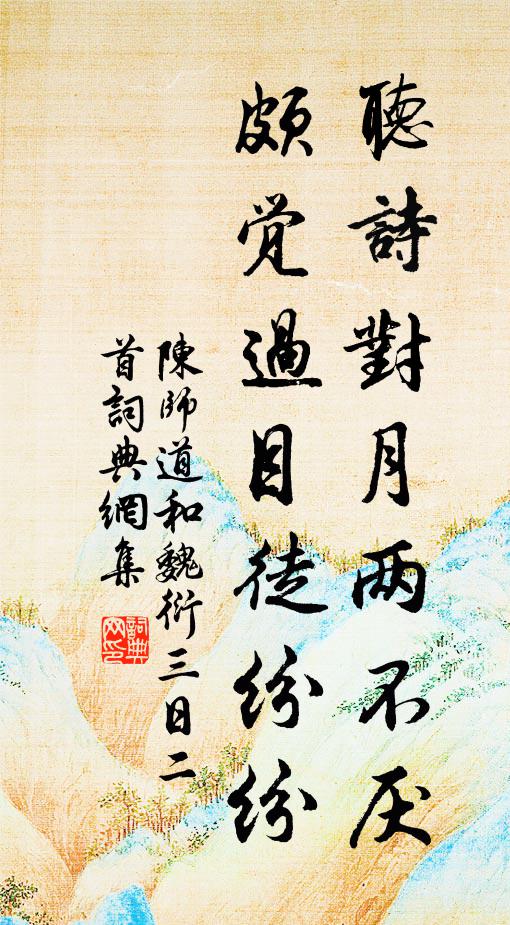 聽詩對月两不厌
頗覺過目徒紛紛
陳師道和魏衍三日二
首詞典網集
詞典
网印